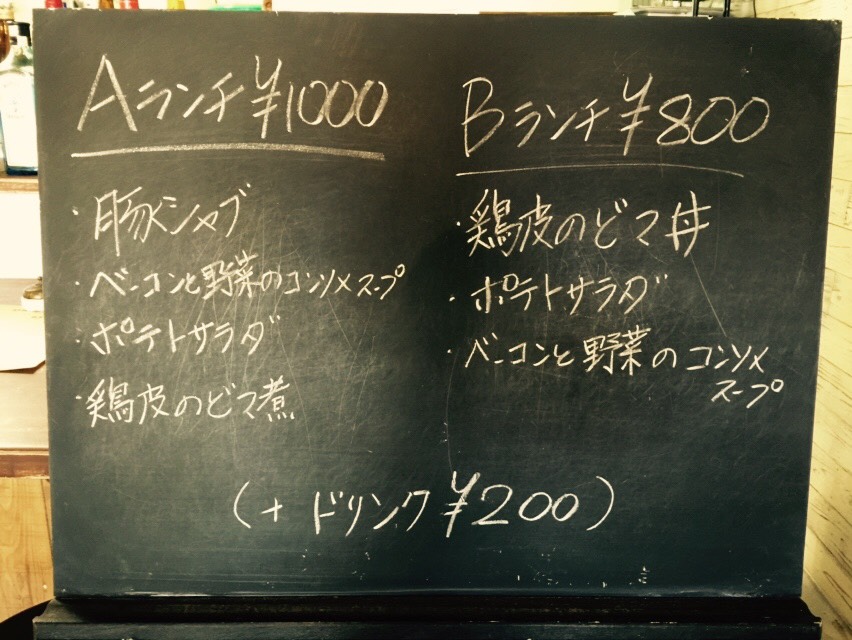 Aランチ ¥1000
・豚しゃぶ
・ベーコンと野菜のコンソメスープ
・ポテトサラダ
・鶏皮のどマ煮
Bランチ ¥800
・鶏皮のどマ丼
・ポテトサラダ
・ベーコンと野菜のコンソメ
スープ
(+ ドリンク ¥200)